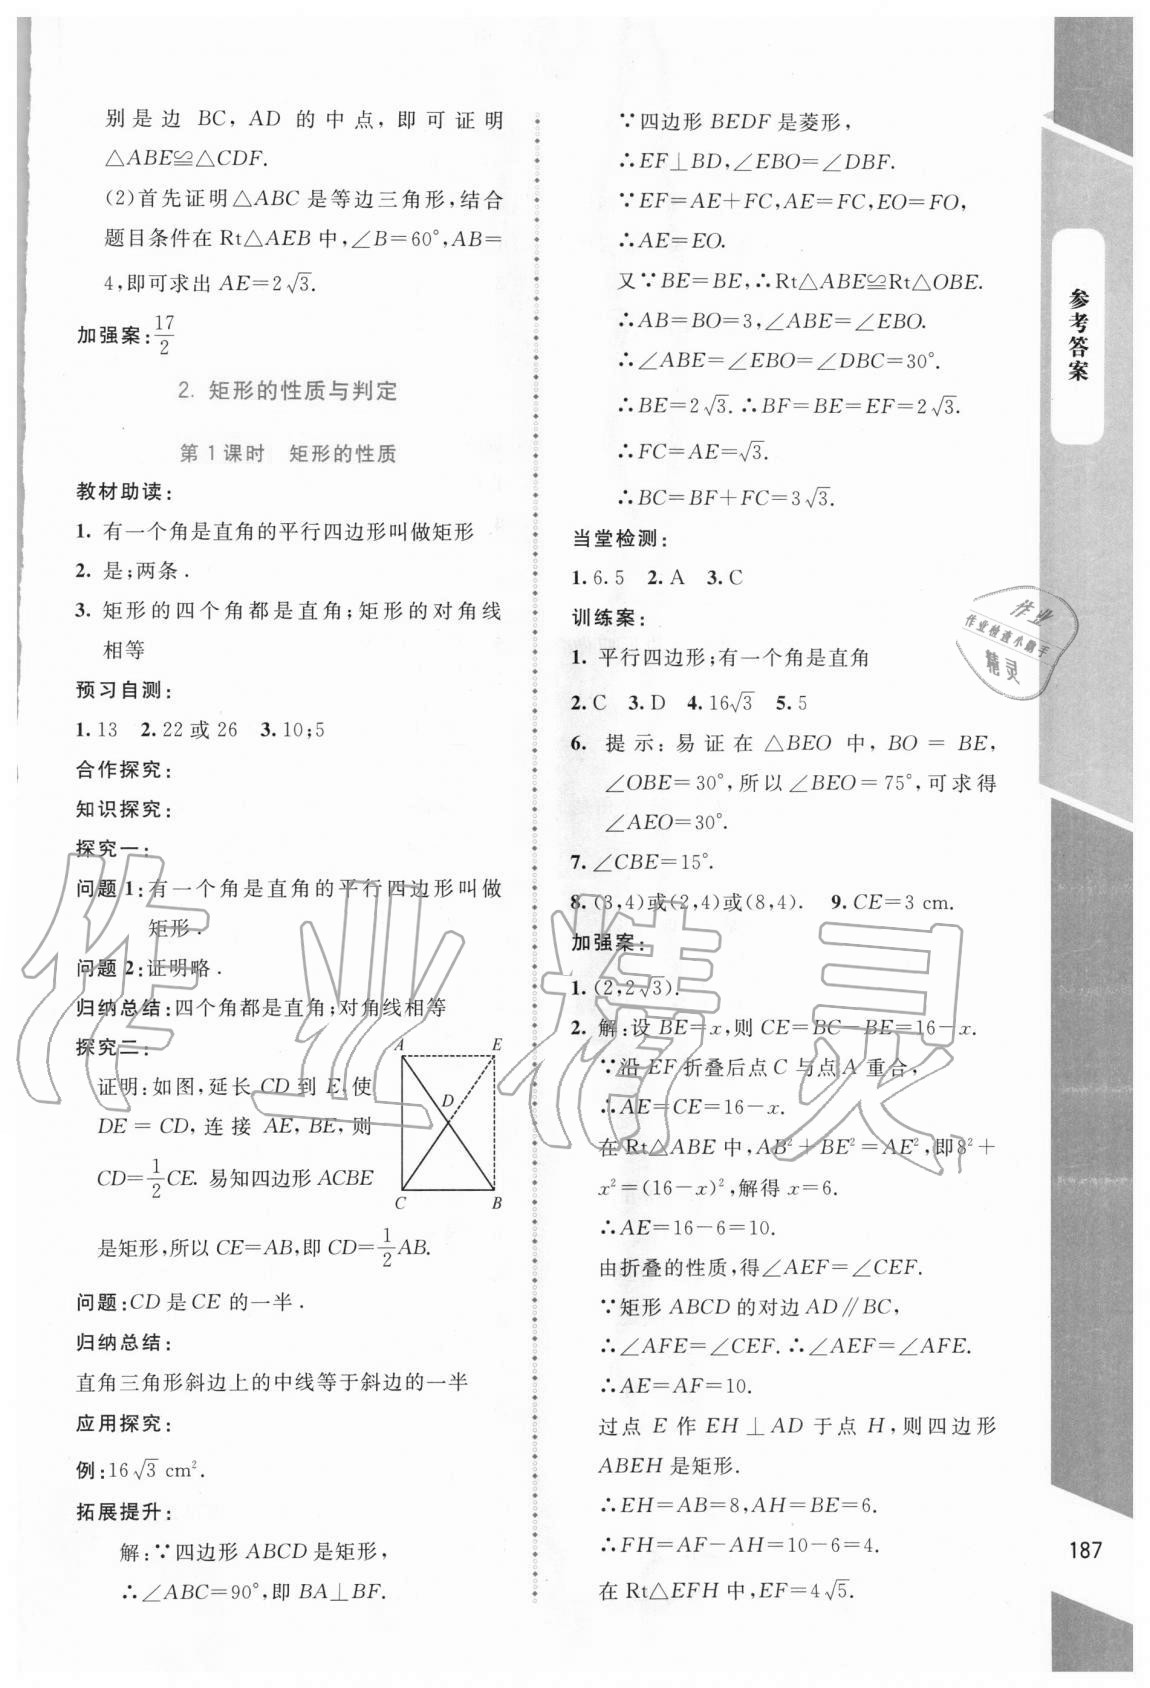 别是边 BC, AD 的中点,即可证明
△ABE≌△CDF.
(2)首先证明△ABC是等边三角形,结合
题目条件在Rt△AEB中,∠B=60°,AB=
4,即可求出AE=2√3.
加强案:17/2
2. 矩形的性质与判定
第1课时 矩形的性质
教材助读:
1. 有一个角是直角的平行四边形叫做矩形
2. 是;两条.
3. 矩形的四个角都是直角;矩形的对角线
相等
预习自测:
1.13 2.22或26 3.10;5
合作探究:
知识探究:
探究一:
问题1:有一个角是直角的平行四边形叫做
矩形.
问题2:证明略.
归纳总结:四个角都是直角;对角线相等
探究二:
证明:如图,延长CD到E,使
DE=CD,连接AE,BE,则
CD=1/2CE.易知四边形ACBE
是矩形,所以CE=AB,即CD=1/2AB.
A
E
D
C
B
问题:CD是CE的一半.
归纳总结:
直角三角形斜边上的中线等于斜边的一半
应用探究:
例:16√3 cm².
拓展提升:
解:∵四边形ABCD是矩形,
∴∠ABC=90°,即BA⊥BF.
∵四边形BEDF是菱形,
∴EF⊥BD,∠EBO=∠DBF.
∵EF=AE+FC,AE=FC,EO=FO,
∴AE=EO.
又∵BE=BE,∴Rt△ABE≌Rt△OBE.
∴AB=BO=3,∠ABE=∠EBO.
∴∠ABE=∠EBO=∠DBC=30°.
∴BE=2√3.∴BF=BE=EF=2√3.
∴FC=AE=√3.
∴BC=BF+FC=3√3.
当堂检测:
1.6.5 2.A 3.C
训练案:
1. 平行四边形;有一个角是直角
2.C 3.D 4.16√3 5.5
6. 提示:易证在△BEO中,BO=BE,
∠OBE=30°,所以∠BEO=75°,可求得
∠AEO=30°.
7.∠CBE=15°.
8.(3,4)或(2,4)或(8,4). 9.CE=3 cm.
加强案:
1.(2,2√3).
2. 解:设BE=x,则CE=BC-BE=16-x.
∵沿EF折叠后点C与点A重合,
∴AE=CE=16-x.
在Rt△ABE中,AB²+BE²=AE²,即8²+
x²=(16-x)²,解得x=6.
∴AE=16-6=10.
由折叠的性质,得∠AEF=∠CEF.
∵矩形ABCD的对边AD∥BC,
∴∠AFE=∠CEF.∴∠AEF=∠AFE.
∴AE=AF=10.
过点E作EH⊥AD于点H,则四边形
ABEH是矩形.
∴EH=AB=8,AH=BE=6.
∴FH=AF-AH=10-6=4.
在Rt△EFH中,EF=4√5.
参考答案
187
作业
作业检查小助手
精灵
作业精灵